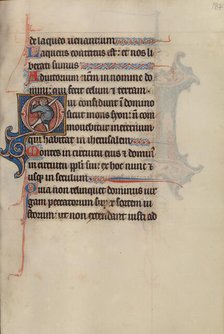 de laqueo uenantium
Laqueus contritus est et nos li
berati sumus
Adiutorium nrm in nomine do
mini qui fecit celum et terram
Qui confidunt in domino
sicut mons syon non com
mouebitur in eternum
qui habitat in iherusalem
Montes in circuitu eius et dominus
in circuitu ppli sui ex hoc nunc et
usqz in seculum
Quia non relinquet dominus uir
gam peccatorum super sortem iu
storum ut non extendant iusti ad